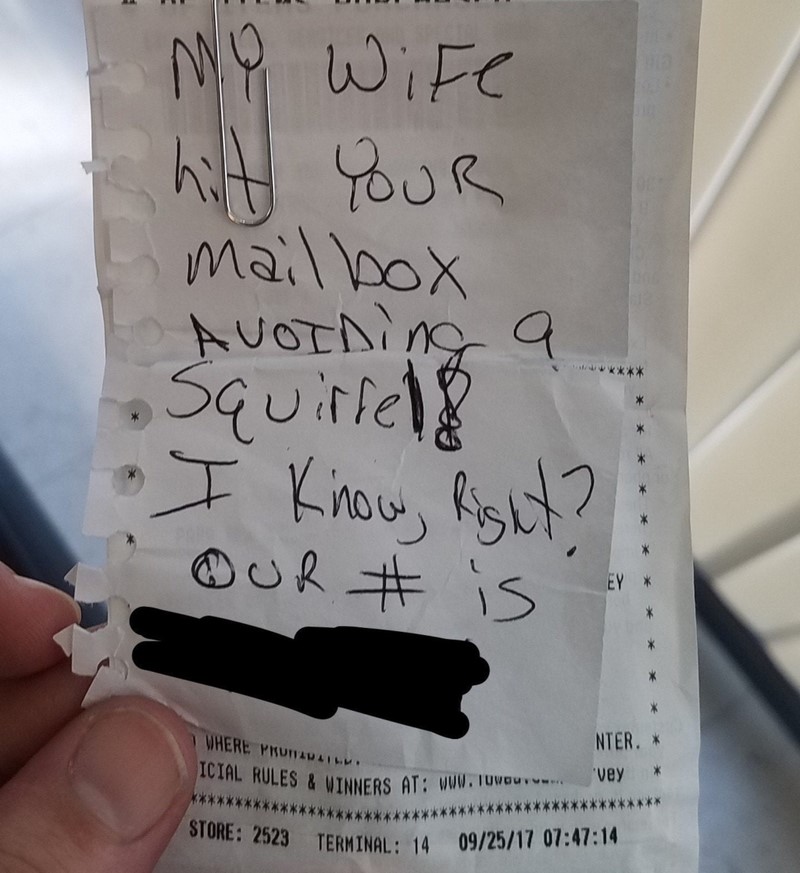 MY WiFe
hit YOUR
mailbox
AVOIDing a
Squirrel!
I Know, Right?
OUR # is
EY
WHERE PROHIBITED.
NTER.
ICIAL RULES & WINNERS AT:
vey
STORE: 2523 TERMINAL: 14 09/25/17 07:47:14